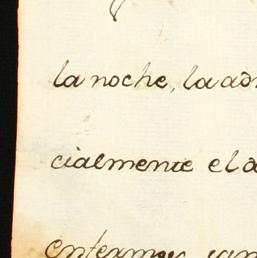 la noche, la ad
cialmente el a
enfermos, con